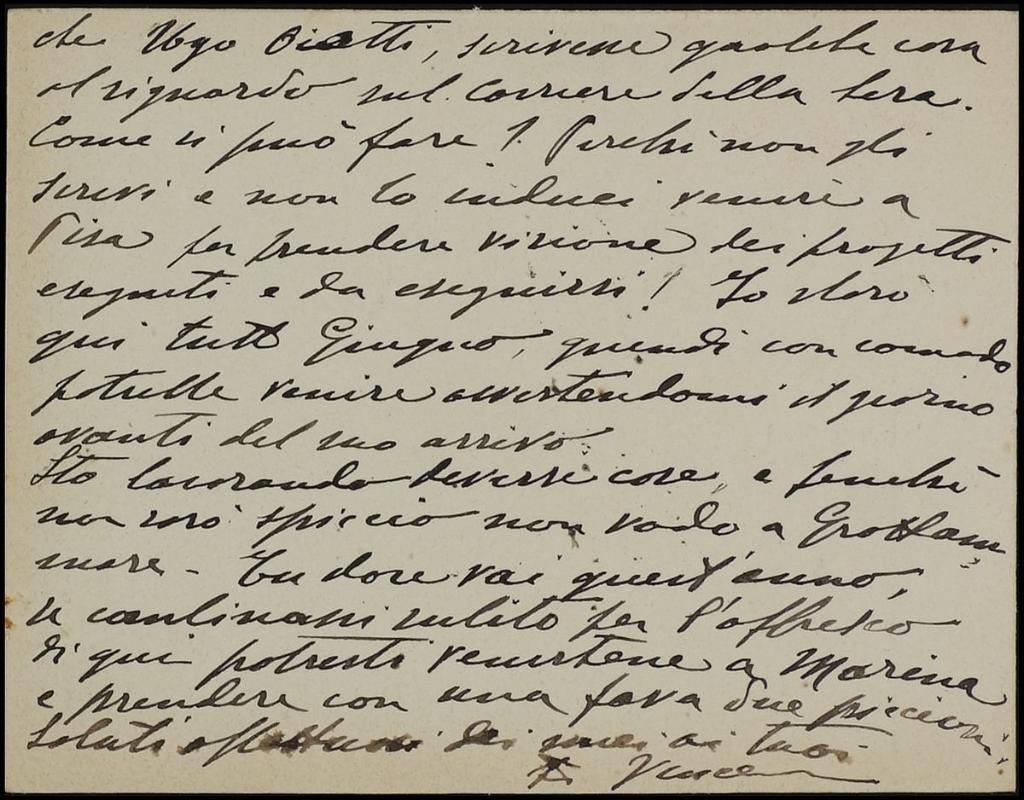 che Ugo Ojetti, scrivesse qualche cosa
al riguardo sul Corriere della Sera.
Come si può fare? Perchè non gli
scrivi e non lo induci venire a
Pisa per prendere visione dei progetti
eseguiti e da eseguirsi! Io starò
qui tutt Giugno, quindi con comodo
potrebbe venire avvertendomi il giorno
avanti del suo arrivo.
Sto lavorando diverse cose, e finchè
non sarò spiccio non vado a Grottam-
mare - Tu dove vai quest'anno,
se combinassi subito per l'affresco
di qui potresti venirtene a Marina
e prendere con una fava due piccioni.
Saluti affettuosi dei miei ai tuoi